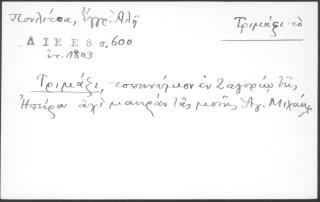 Πουλίτσα, Ἔγγρ. Ἀλῆ
Τριμάξι τὸ
Δ Ι Ε Ε 8 σ. 600
ἔτ. 1803
Τριμάξι, τοπωνύμιον ἐν Ζαγορίῳ τῆς
Ἠπείρου ὀχὶ μακρὰν τῆς μονῆς Ἁγ. Μιχαήλ